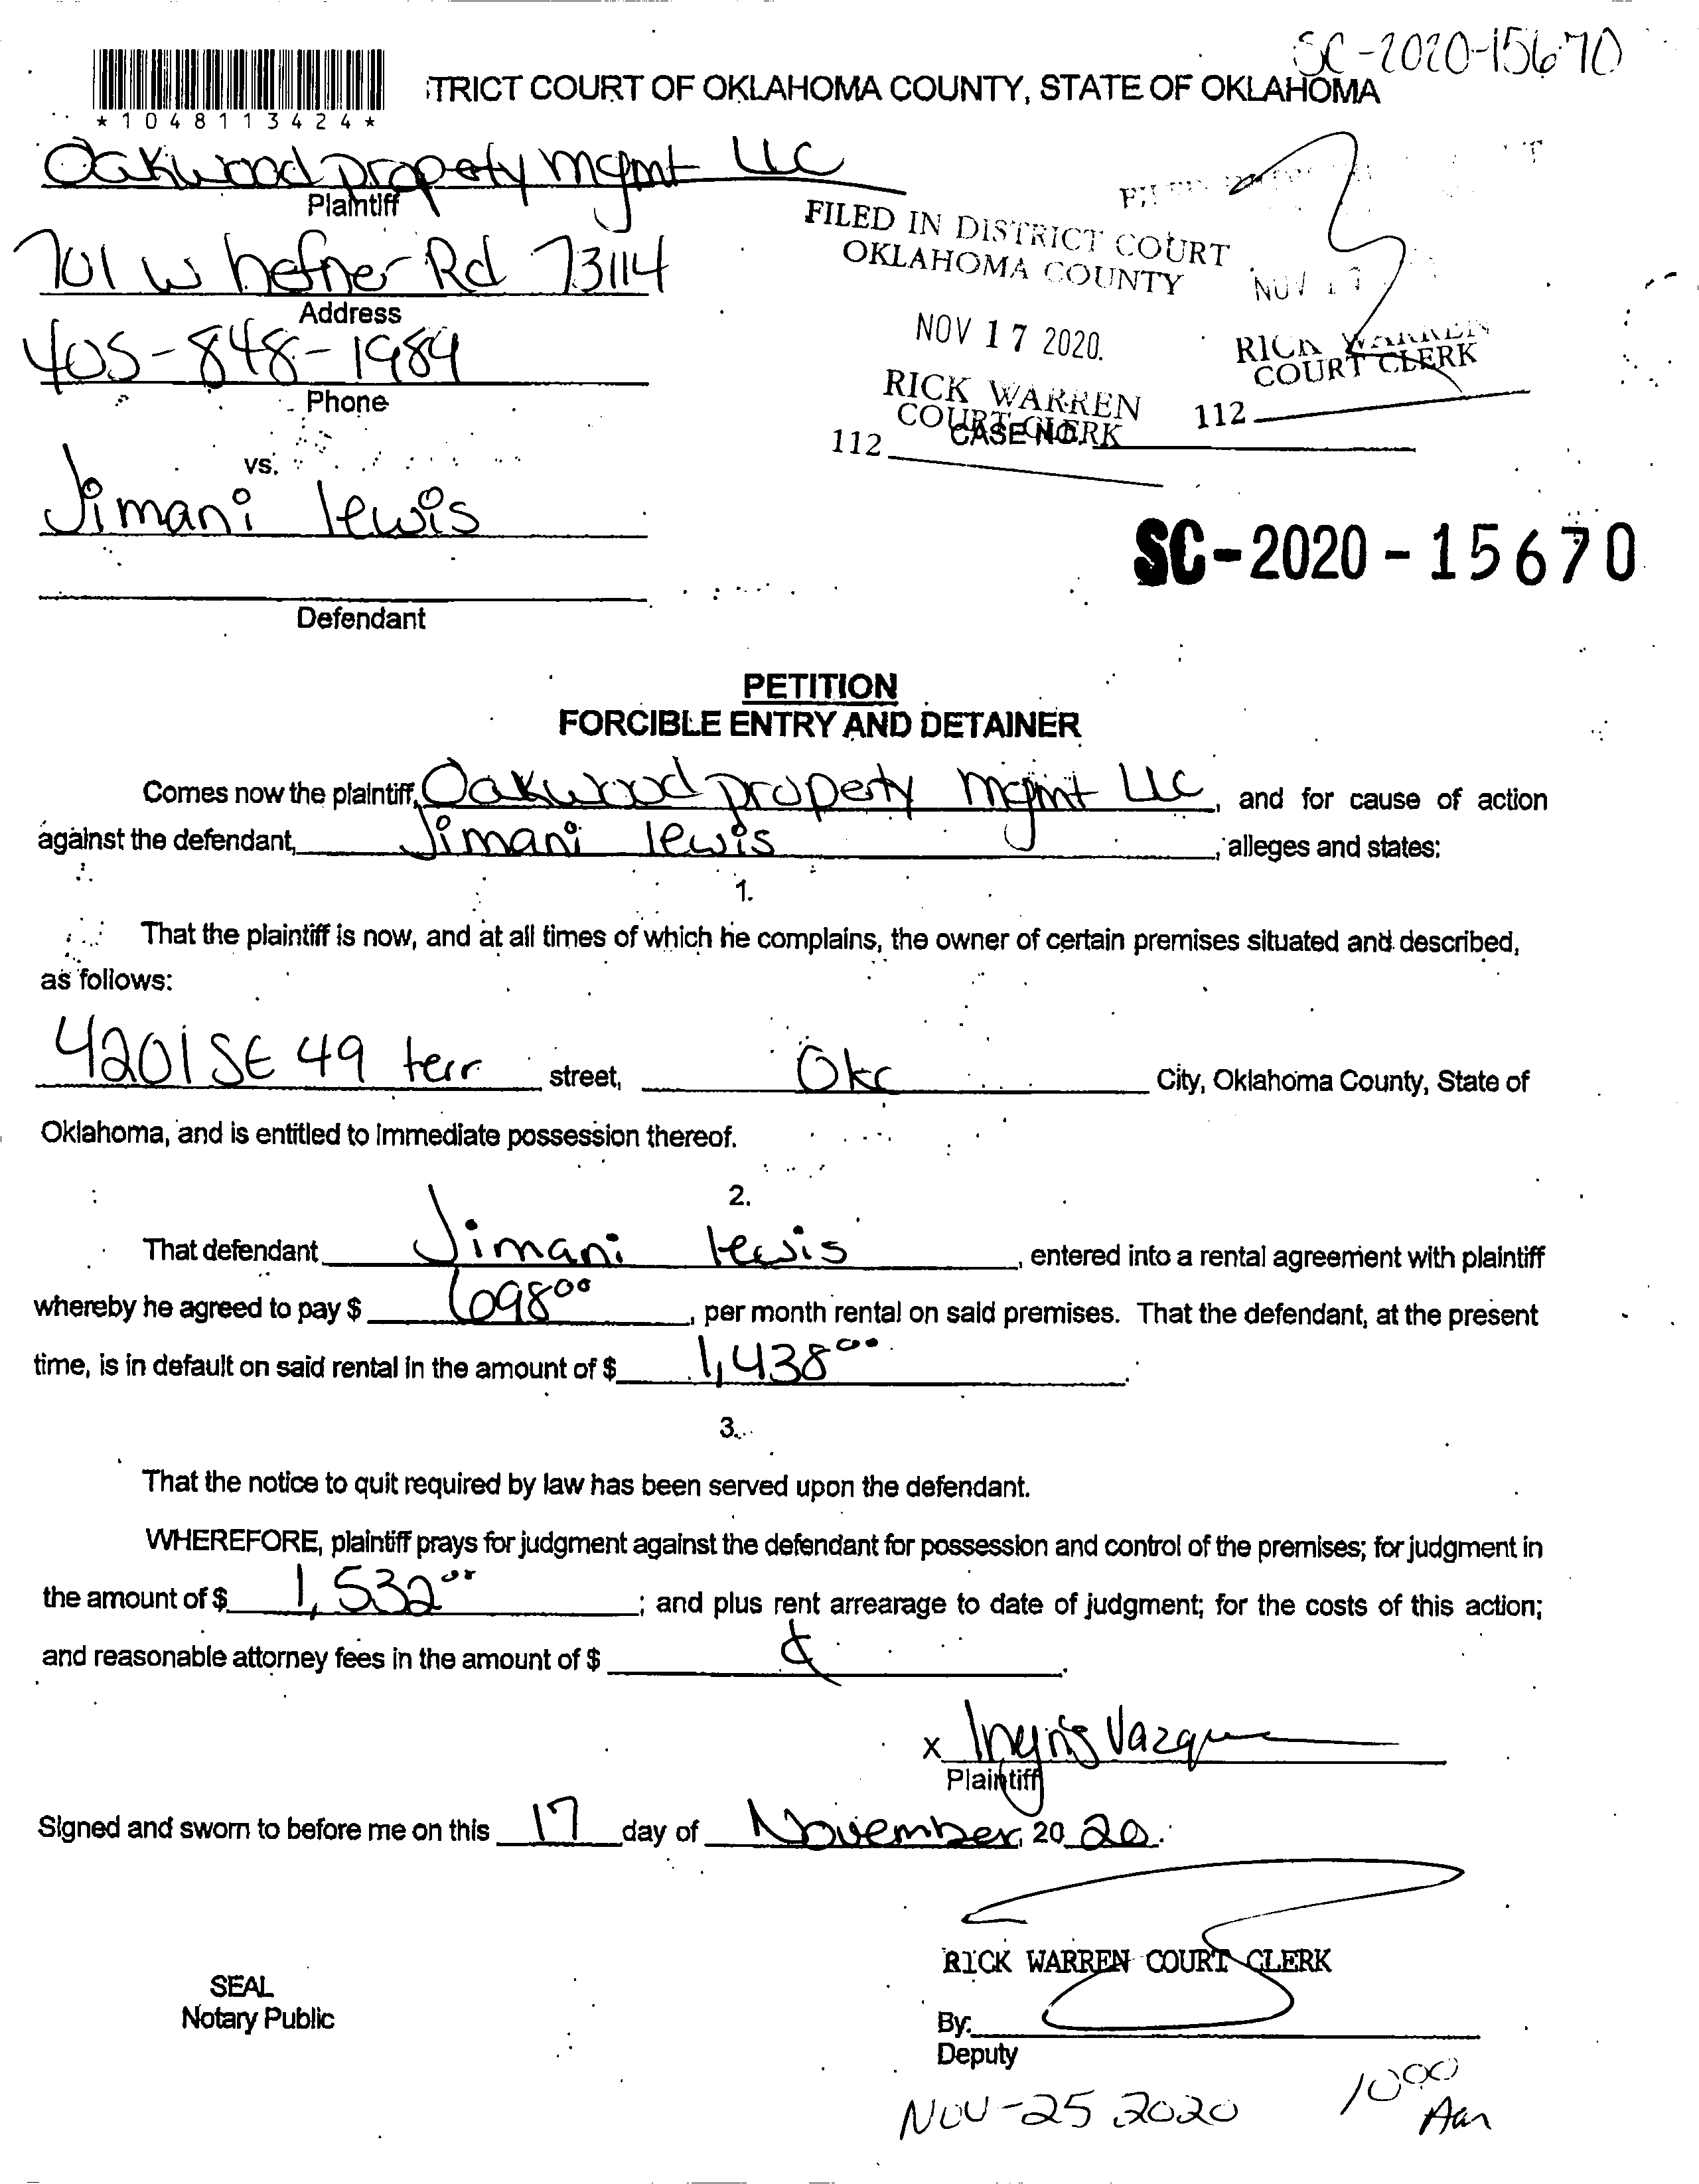 SC-2020-15670
TRICT COURT OF OKLAHOMA COUNTY, STATE OF OKLAHOMA
*1048113424*
Oakwood property mgmt LLC
Plaintiff
701 W hefner Rd 73114
Address
405-848-1984
Phone
FILED IN DISTRICT COURT
OKLAHOMA COUNTY
NOV 17 2020
RICK WARREN
COURT CLERK
112
NOV 17
RICK WARREN
COURT CLERK
112
CASE NO.
vs.
Jimani lewis
Defendant
SC-2020-15670
PETITION
FORCIBLE ENTRY AND DETAINER
Comes now the plaintiff, Oakwood property mgmt LLC, and for cause of action
against the defendant, Jimani lewis, alleges and states:
1.
That the plaintiff is now, and at all times of which he complains, the owner of certain premises situated and described,
as follows:
4201 SE 49 terr street, Okc City, Oklahoma County, State of
Oklahoma, and is entitled to immediate possession thereof.
2.
That defendant Jimani lewis, entered into a rental agreement with plaintiff
whereby he agreed to pay $ 698 00, per month rental on said premises. That the defendant, at the present
time, is in default on said rental in the amount of $ 1,438 00.
3.
That the notice to quit required by law has been served upon the defendant.
WHEREFORE, plaintiff prays for judgment against the defendant for possession and control of the premises; for judgment in
the amount of $ 1,532 00; and plus rent arrearage to date of judgment; for the costs of this action;
and reasonable attorney fees in the amount of $
x Vazquez
Plaintiff
Signed and sworn to before me on this 17 day of November, 20 20.
RICK WARREN COURT CLERK
SEAL
Notary Public
By:
Deputy
NOV-25 2020 10 00 Am